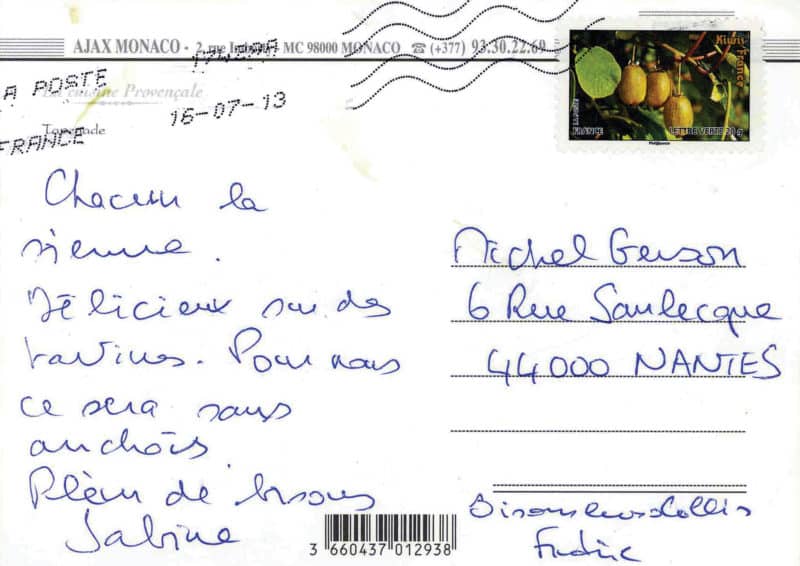 AJAX MONACO - 2, rue - MC 98000 MONACO ☎ (+377) 93.30.22.69
LA POSTE
FRANCE
16-07-13
La cuisine Provençale
Tapenade
Kiwi France
LA POSTE
FRANCE
LETTRE VERTE 20 g
Chacun la
sienne.
Délicieux sur des
tartines. Pour nous
ce sera sans
anchois.
Plein de bisous
Sabine
Michel Gerson
6 Rue Saulecque
44000 NANTES
Frédéric
3 660437 012938